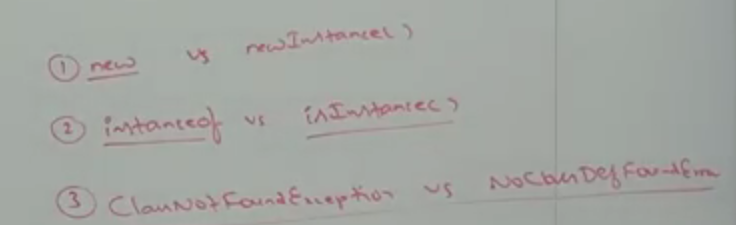 ① new vs newInstance()
② instanceof vs isInstance()
③ ClassNotFoundException vs NoClassDefFoundError